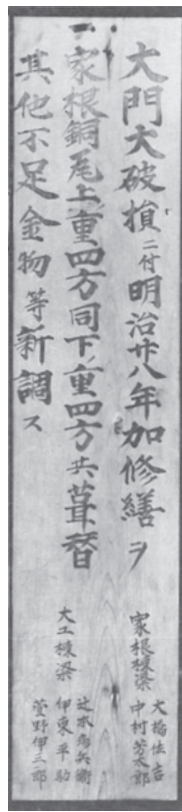 大門大破損ニ付明治廿八年加修繕ヲ
一家根銅瓦上ノ重四方同下ノ重四方共葺替
其他不足金物等新調ス
家根棟梁
大橋佐吉
中村芳太郎
大工棟梁
辻本為兵衛
伊東平助
菅野伊三郎